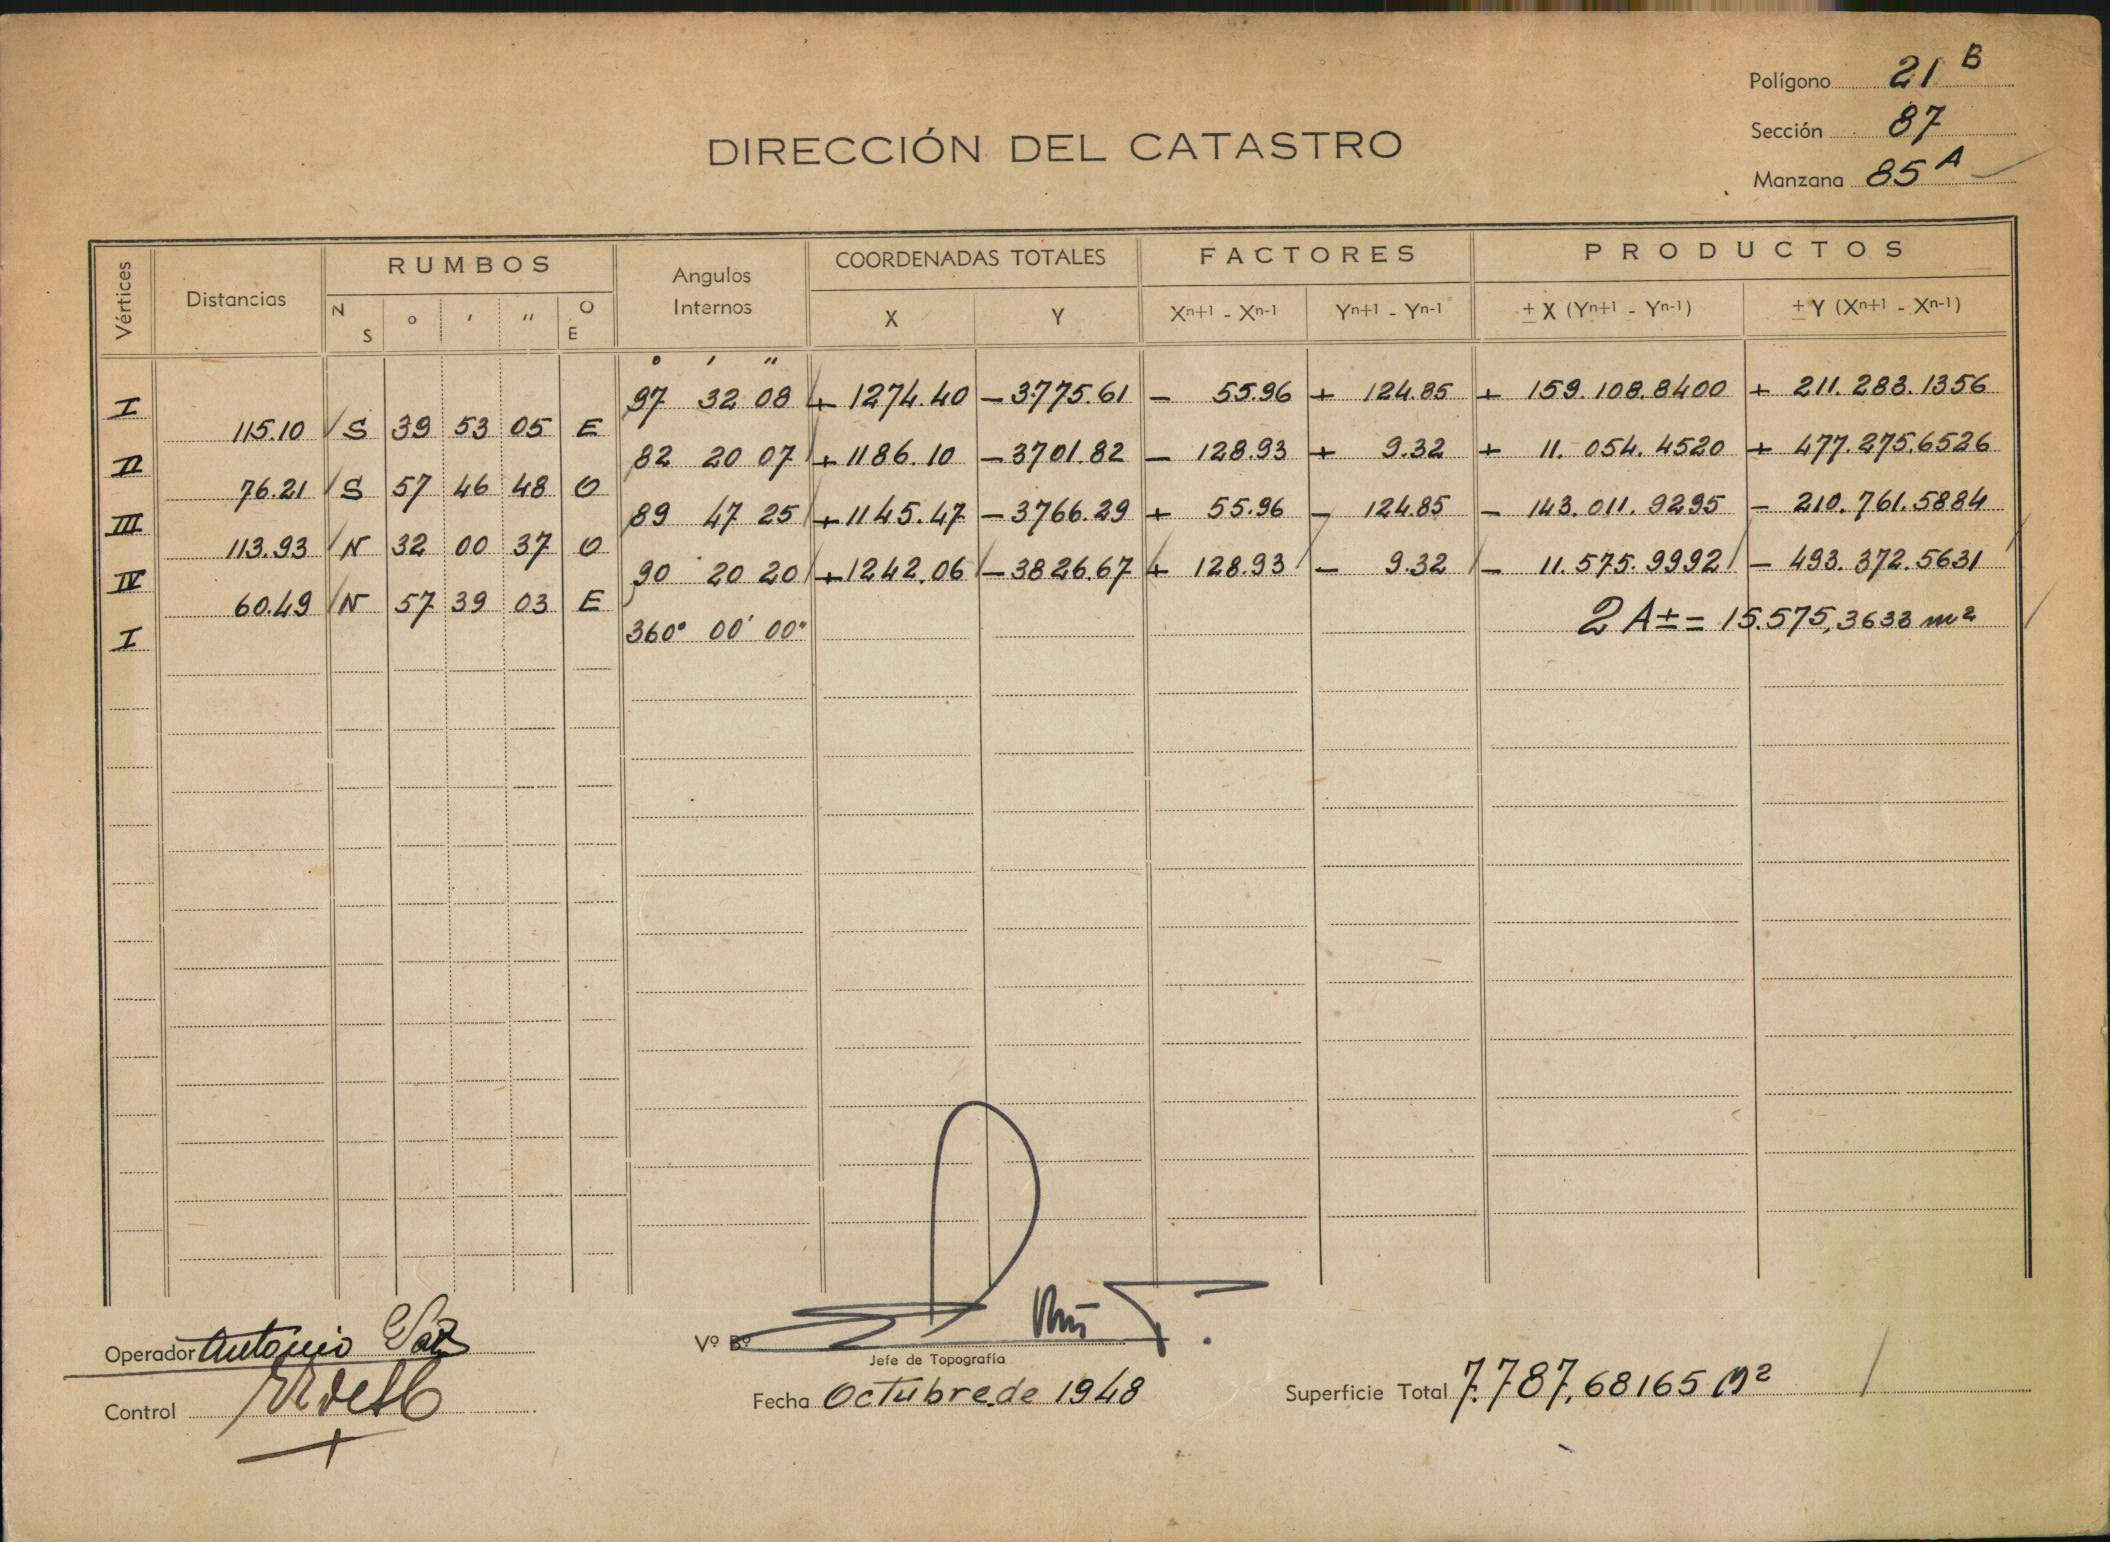 Polígono 21 B
Sección 87
Manzana 85 A
DIRECCIÓN DEL CATASTRO
Vértices Distancias RUMBOS Angulos Internos COORDENADAS TOTALES FACTORES PRODUCTOS
N S o ′ ″ O E X Y Xn+1 - Xn-1 Yn+1 - Yn-1 ± X (Yn+1 - Yn-1) ± Y (Xn+1 - Xn-1)
° ′ ″
I 97 32 08 + 1274.40 - 3775.61 - 55.96 + 124.85 + 159.108.8400 + 211.283.1356
115.10 S 39 53 05 E
II 82 20 07 + 1186.10 - 3701.82 - 128.93 + 9.32 + 11.054.4520 + 477.275.6526
76.21 S 57 46 48 O
III 89 47 25 + 1145.47 - 3766.29 + 55.96 - 124.85 - 143.011.9295 - 210.761.5884
113.93 N 32 00 37 O
IV 90 20 20 + 1242.06 - 3826.67 + 128.93 - 9.32 - 11.575.9992 - 493.372.5631
60.49 N 57 39 03 E
I 360° 00′ 00″ 2 A ± = 15.575,3633 m2
Operador Antonio
Vº Bº
Jefe de Topografía
Control
Fecha Octubre de 1948
Superficie Total 7.787,68165 M2